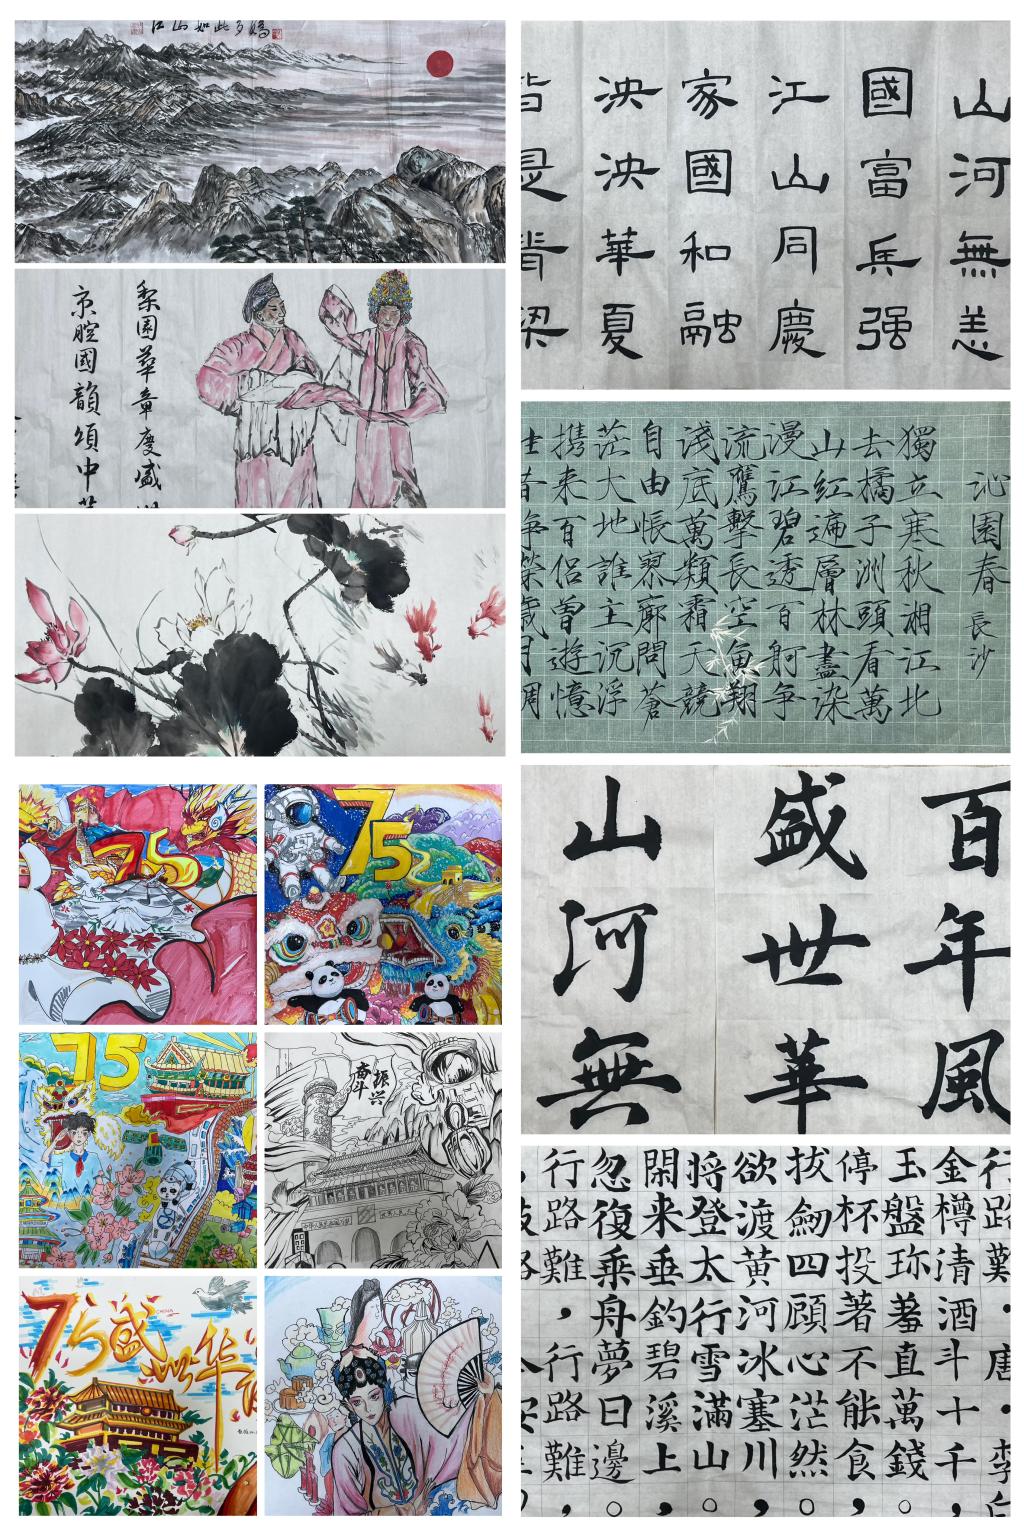 江山如此多嬌
梨園華章慶盛
京腔國韻頌中
75
75
75
振兴
奋斗
75盛世华
CHINA
山河無恙
國富兵强
江山同慶
家國和融
泱泱華夏
皆是脊梁
沁園春 長沙
獨立寒秋湘江北
去橘子洲頭看萬
山紅遍層林盡染
漫江碧透百舸爭
流鷹擊長空魚翔
淺底萬類霜天競
自由悵寥廓問蒼
茫大地誰主沉浮
携来百侣曾遊憶
百年風
盛世華
山河無
行路難·唐·李白
金樽清酒斗十千，
玉盤珍羞直萬錢。
停杯投著不能食，
拔劍四顧心茫然。
欲渡黄河冰塞川，
將登太行雪滿山。
閑来垂釣碧溪上，
忽復乘舟夢日邊。
行路難，行路難，